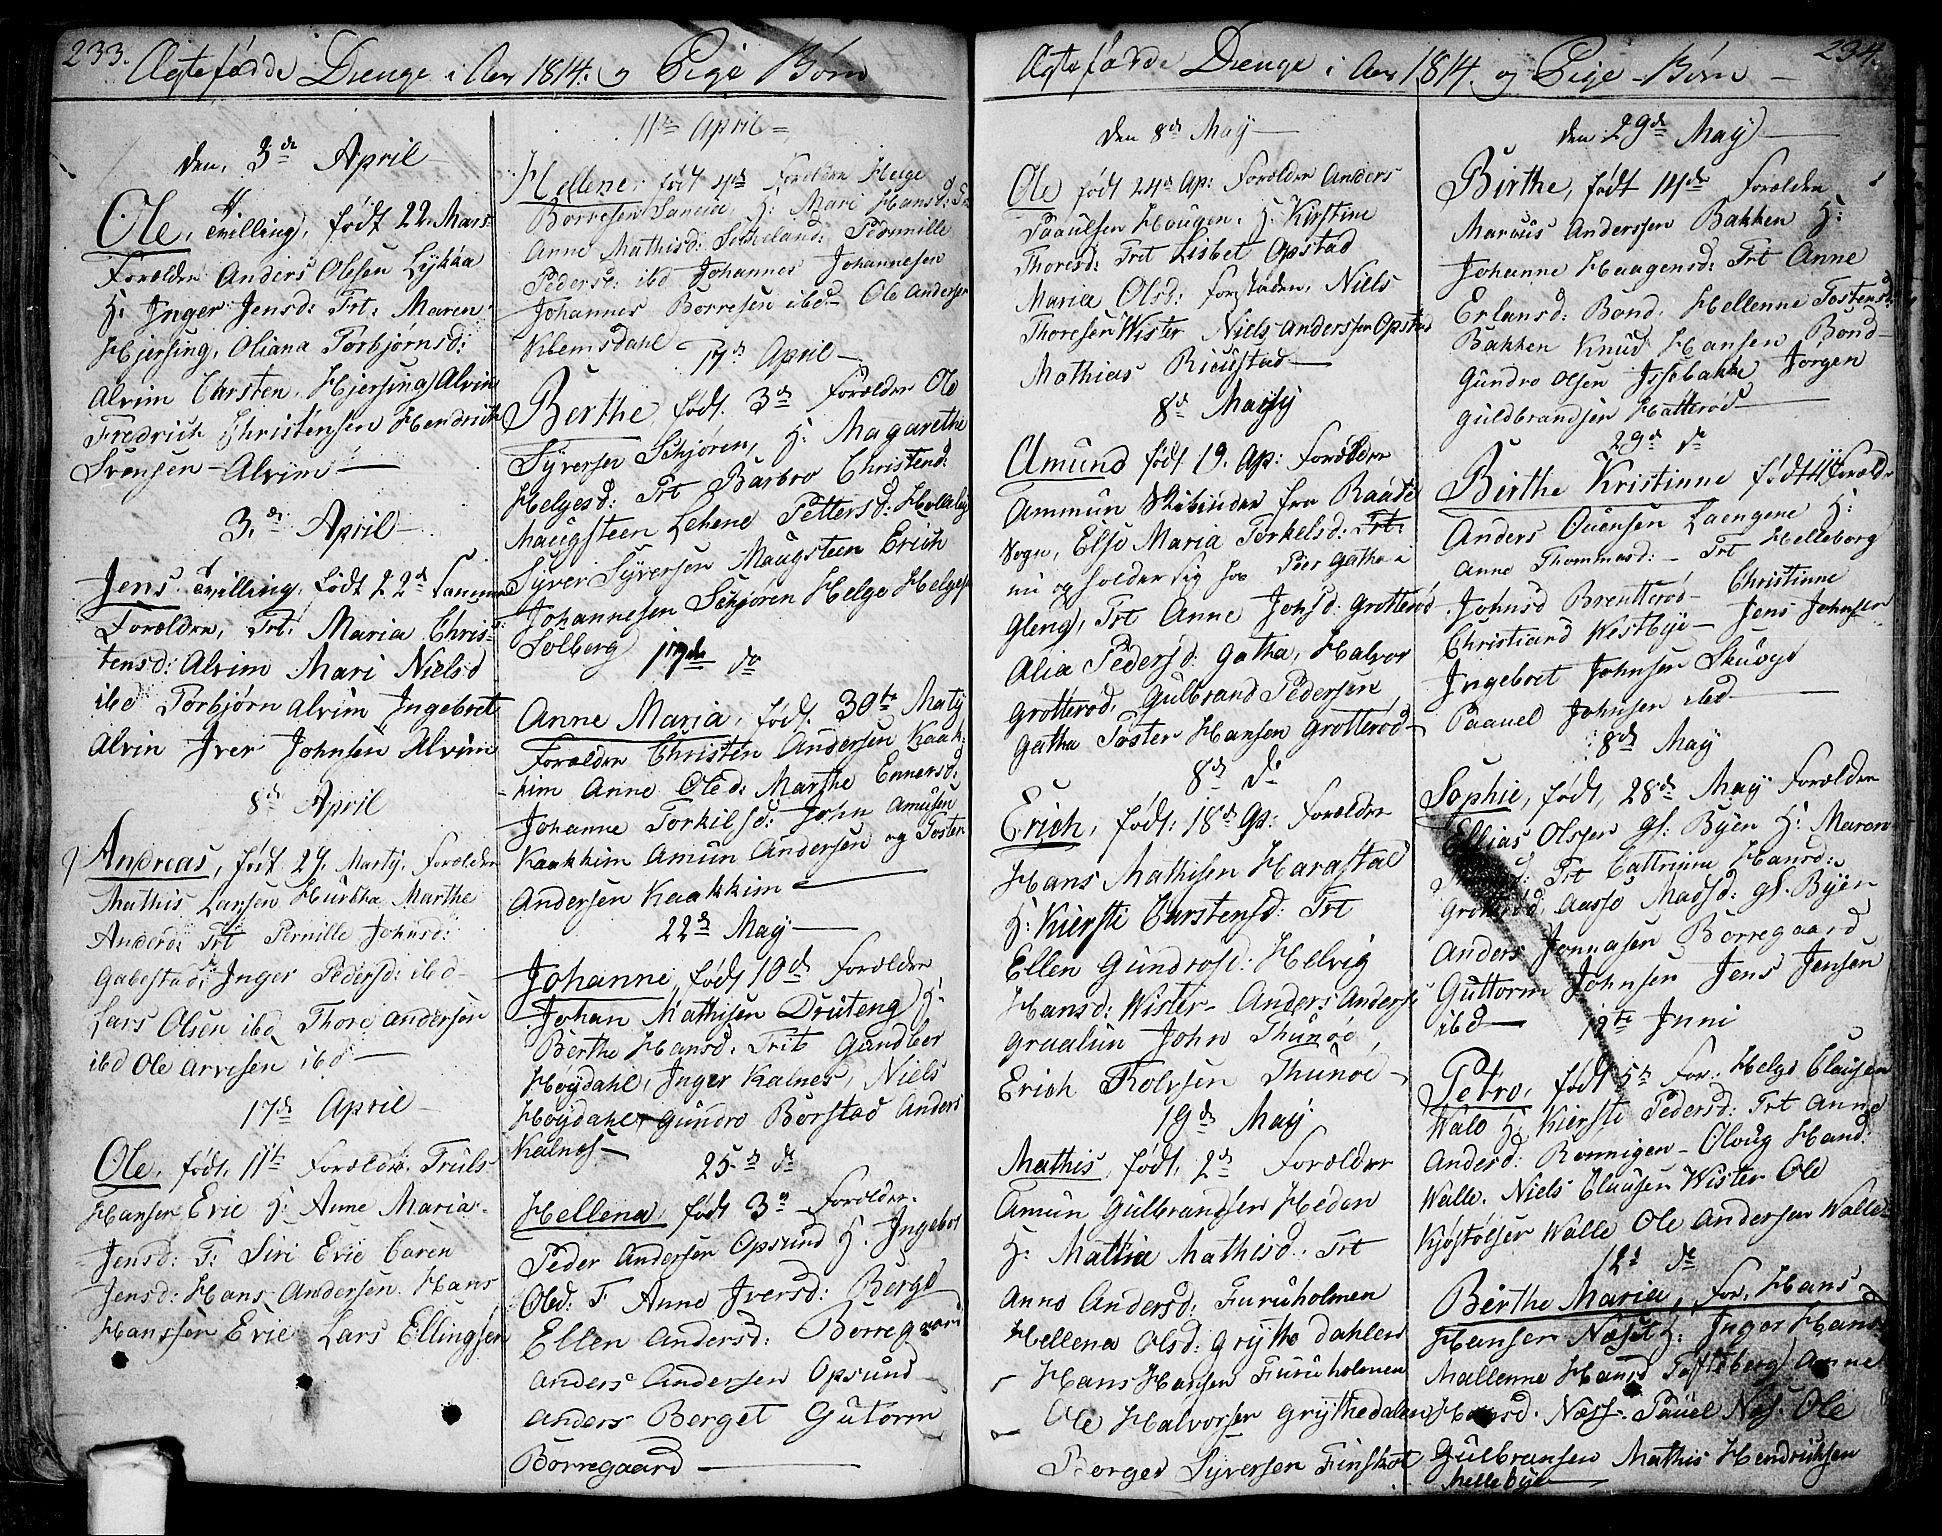 233.
Ægtefødde Drenge i Aar 1814. og Pige Børn
den, 3de April
Ole, Tvilling, født 22. Mars
Forældre Anders Olesen Lykka
H: Inger Jensd: Frt: Maren
Hjersing, Oliana Torbjørnsd:
Alvim Chrsten Hjersing Alvim
Fredrich Christensen Hendrich
Svensen Alvim
3de April
Jens Tvilling, født 22de Samme
Forældre, Frt: Maria Chris-
tensd: Alvim Mari Nielsd
ibd Torbjørn Alvim Ingebret
Alvin Iver Johnsen Alvim
8de April
Andreas, født 29. Martÿ, Forældre
Mathis Larsen Marthe
Anderd: Frt Pernille Johnsd:
Gabestad, Inger Pedersd: ibd
Lars Olsen ibd Thore Andersen
ibd Ole Arvesen ibd
17de April
Ole, født, 11te Forældre Truls
Hansen Evie H: Anne Maria
Jensd: F: Siri Evie Caren
Jensd: Hans Andersen Hans
Hanssen Evie Lars Ellingsen
11te April
Hellene, født 4de Forældre Helge
Borresen H: Mari Hansd:
Anne Mathisd: Pedernille
Pedersd: ibd Johannes Johannesen
Johannes Borresen ibd Ole Andersen
Klemsdahl
17de April
Berthe, født. 3de Forældre Ole
Syversen Schjøren, H: Magarethe
Helgesd: Frt Barbro Christend:
Haugsteen Lehene Pettersd:
Syver Syversen Haugsteen Erich
Johannesen Schjøren Helge Helgesen
Solberg
17de do
Anne Maria, født. 30te Martÿ
Forældre Christen Andersen Kaak-
kim Anne Olsd: Marthe Ennersd:
Johanne Torkilsd: John Amusen
Kaakkim Amun Andersen og Tosten
Andersen Kaakkim
22de May
Johanne, født 10de Forældre
Johan Mathisen Druteng H:
Berthe Hansd. Frt Gundbor
Høydahl, Inger Kalnes, Niels
Høydahl, Gundro Borstad Anders
Kalnes
25de do
Hellena, født 3de Forældre
Peder Andersen Opsund H: Ingebor
Olsd: F Anne Iversd: Berge
Ellen Andersd: Borregaard
Anders Andersen Opsund
Anders Berget Gutorm
Borregaard
234.
Ægtefødde Drenge i Aar 1814. og Pige Børn
den 8de May
Ole født 24de Ap: Forældre Anders
Paaulsen Haugen, H: Kirstine
Thoresd: Frt Lisbet Opstad
Maria Olsd: Niels
Thoresen Wister Niels Anderssen Opstad
Mathias
8de May
Amund født 19. Ap: Forældre
Ammun fra Raade
Sogn, Else Maria Torkelsd: Frt:
nu og holder sig hos Peer Gatha i
Gleng, Frt Anne Johsd: Grotterød
Alia Pedersd: Gatha, Halvor
Grotterød, Gulbrand Pedersen
Gatha Toster Hansen Grotterød
8de do
Erich, født: 18de Ap: Forældre
Hans Mathisen Harastad
H: Kiersti Carstensd: Frt
Ellen Gundrosd: Helvig
Hansd: Wister Anders Andersen
Graalun John Thunøe,
Erich Rolvsen Thunøe
19de May
Mathis, født, 2de Forældre
Amun Gulbrandsen Heden
H: Mallia Mathisd: Frt
Anne Andersd: Furuholmen
Hellena Olsd: Grytte dahlen
Hans Hansen Furuholmen
Ole Halvorsen Grythedalen
Borger Syversen Finstad
den 29de May
Birthe, født 14de Forældre
Marcus Anderssen Bakken H:
Johanne Haagensd: Frt Anne
Erlansd: Bond. Hellenne Tostensd:
Bakken Knud Hansen Bond
Gundro Olsen Issebakke Jørgen
Guldbrandsen Hatterød
29de do
Birthe Kristinne født Forældre
Anders Ouensen Laengene H:
Anne Thommasd: Frt Helleborg
Johnsd Brentterød Christinne
Christiand Westbye Jens Johnsen
Ingebret Johnsen Skuvgd
Paauel Johnsen ibd
8de May
Sophie, født, 28de May Forældre
Ellias Olsen gl: Byen H: Maren
Frt Cattrinna Hansd:
Grotterød, Aasse Madsd: gl. Byen
Anders Jonnasen Borregaard
Guttorm Johnsen Jens Jensen
ibd
12te Juni
Petro, født 5te For: Helge Clausen
Wale H: Kiersti Pedersd: Frt Anne
Andersd: Ronnigen Oloug Hansd:
Walle. Niels Clausen Wister Ole
Kjøstolsen Walle Ole Andersen Walle
12te do
Birthe Maria, For, Hans
Hansen Næset H: Inger Hansd
Mallenne Hansd Anne
Hansd. Næss Pauel Næs. Ole
Gulbransen Mathis Hendriksen
Hellebye